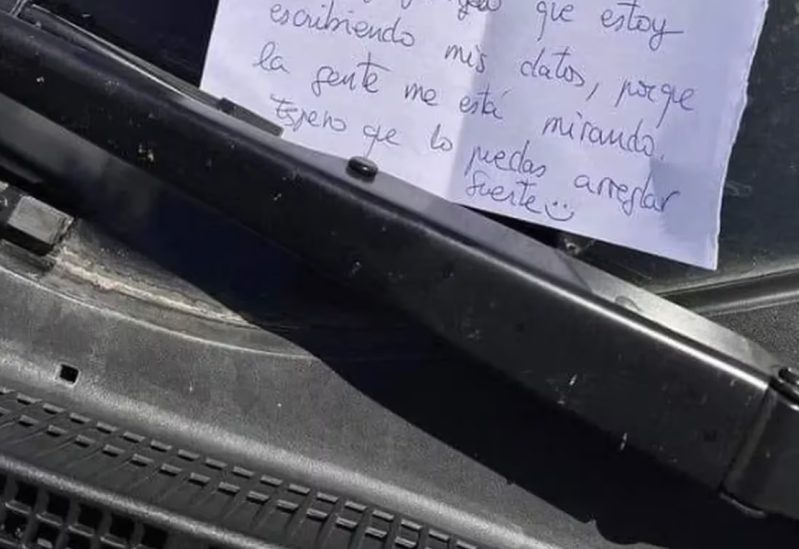 que estoy
escribiendo mis datos, porque
la gente me está mirando.
Espero que lo puedas arreglar
Suerte :)